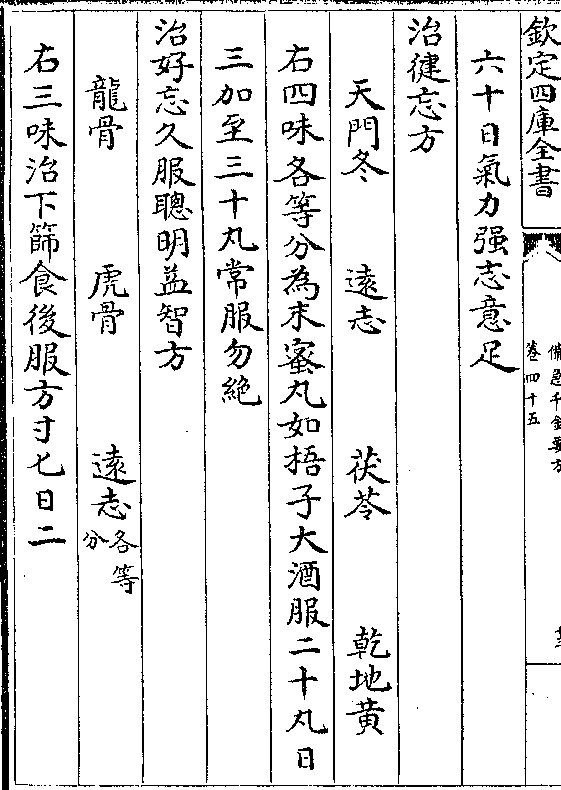 欽定四庫全書
備急千金要方
卷四十五
六十日氣力强志意足
治健忘方
天門冬 遠志 茯苓 乾地黃
右四味各等分為末蜜丸如捂子大酒服二十丸日
三加至三十丸常服勿絶
治好忘久服聰明益智方
龍骨 虎骨 遠志各等分
右三味治下篩食後服方寸匕日二